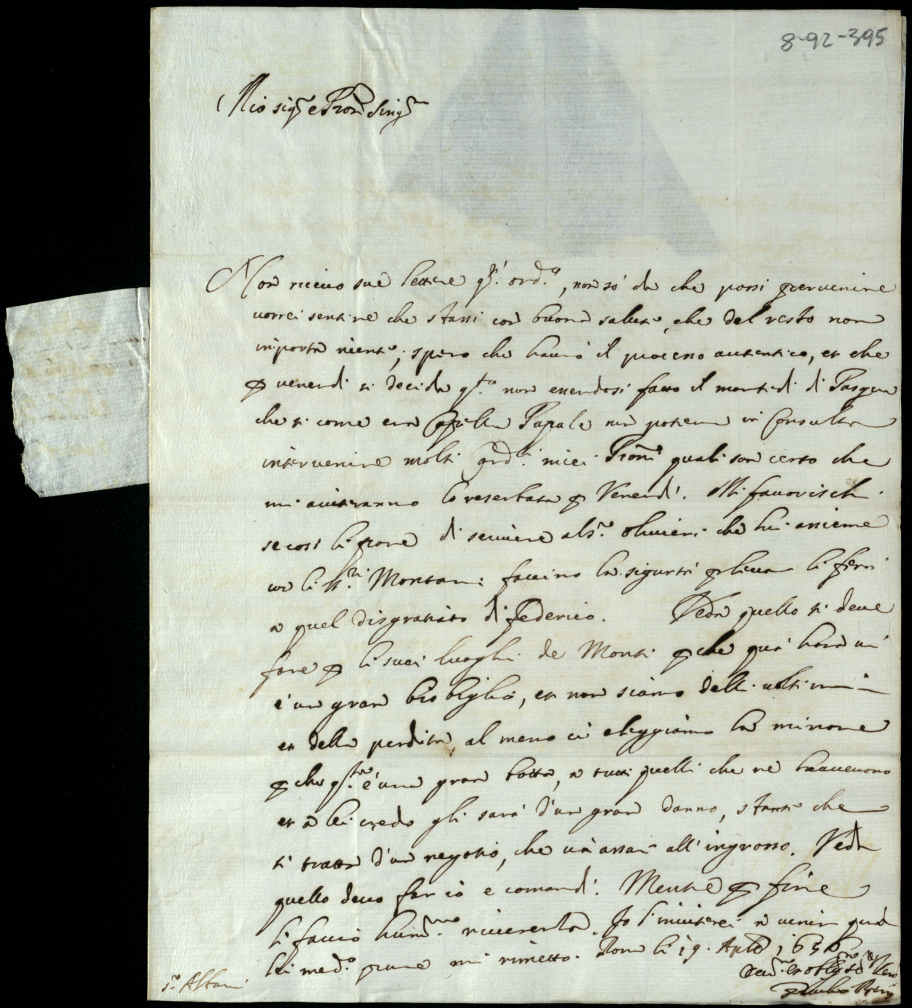 8-92-395
Mio sig.r e Pron Sing.r
Non ricevo sue lettere q.o ord.o, non só da che possi pervenire
vorrei sentire che stassi con buona salute, che del resto non
importa niente; spero che haurà il processo autentico, et che
p venerdi si decida q.to non essendosi fatto il martedi di Pasqua
che si come era Capella Papale non poteva in Consulta
intervenire molti miei Proni quali son certo che
mi aiuteranno p Venerdi. Mi favorischi
di scrivere al s.r Olivieri che lui assieme
con li ss.ri Montani faccino la sigurtà p levar li ferri
a quel disgratiato di Federico. Veda quello si deve
fare p li suoi luoghi de Monti p che quà hora vi
è un gran bisbiglio, et non siamo delli ultimi
et della perdita, al meno ci eleggiamo la minore
p che q.sta è una gran botta, a tutti quelli che ne haveuono
et à lei credo gli sarà d'un gran danno, stante che
si tratta d'un negotio, che và assai all'ingrosso. Veda
quello devo far io e comandi. Mentre p fine
li faccio hum.ma riverenza. Io l'inviterei a venir quà
lei med.o pure mi rimetto. Roma li 19. Aple 165
s.r Albani